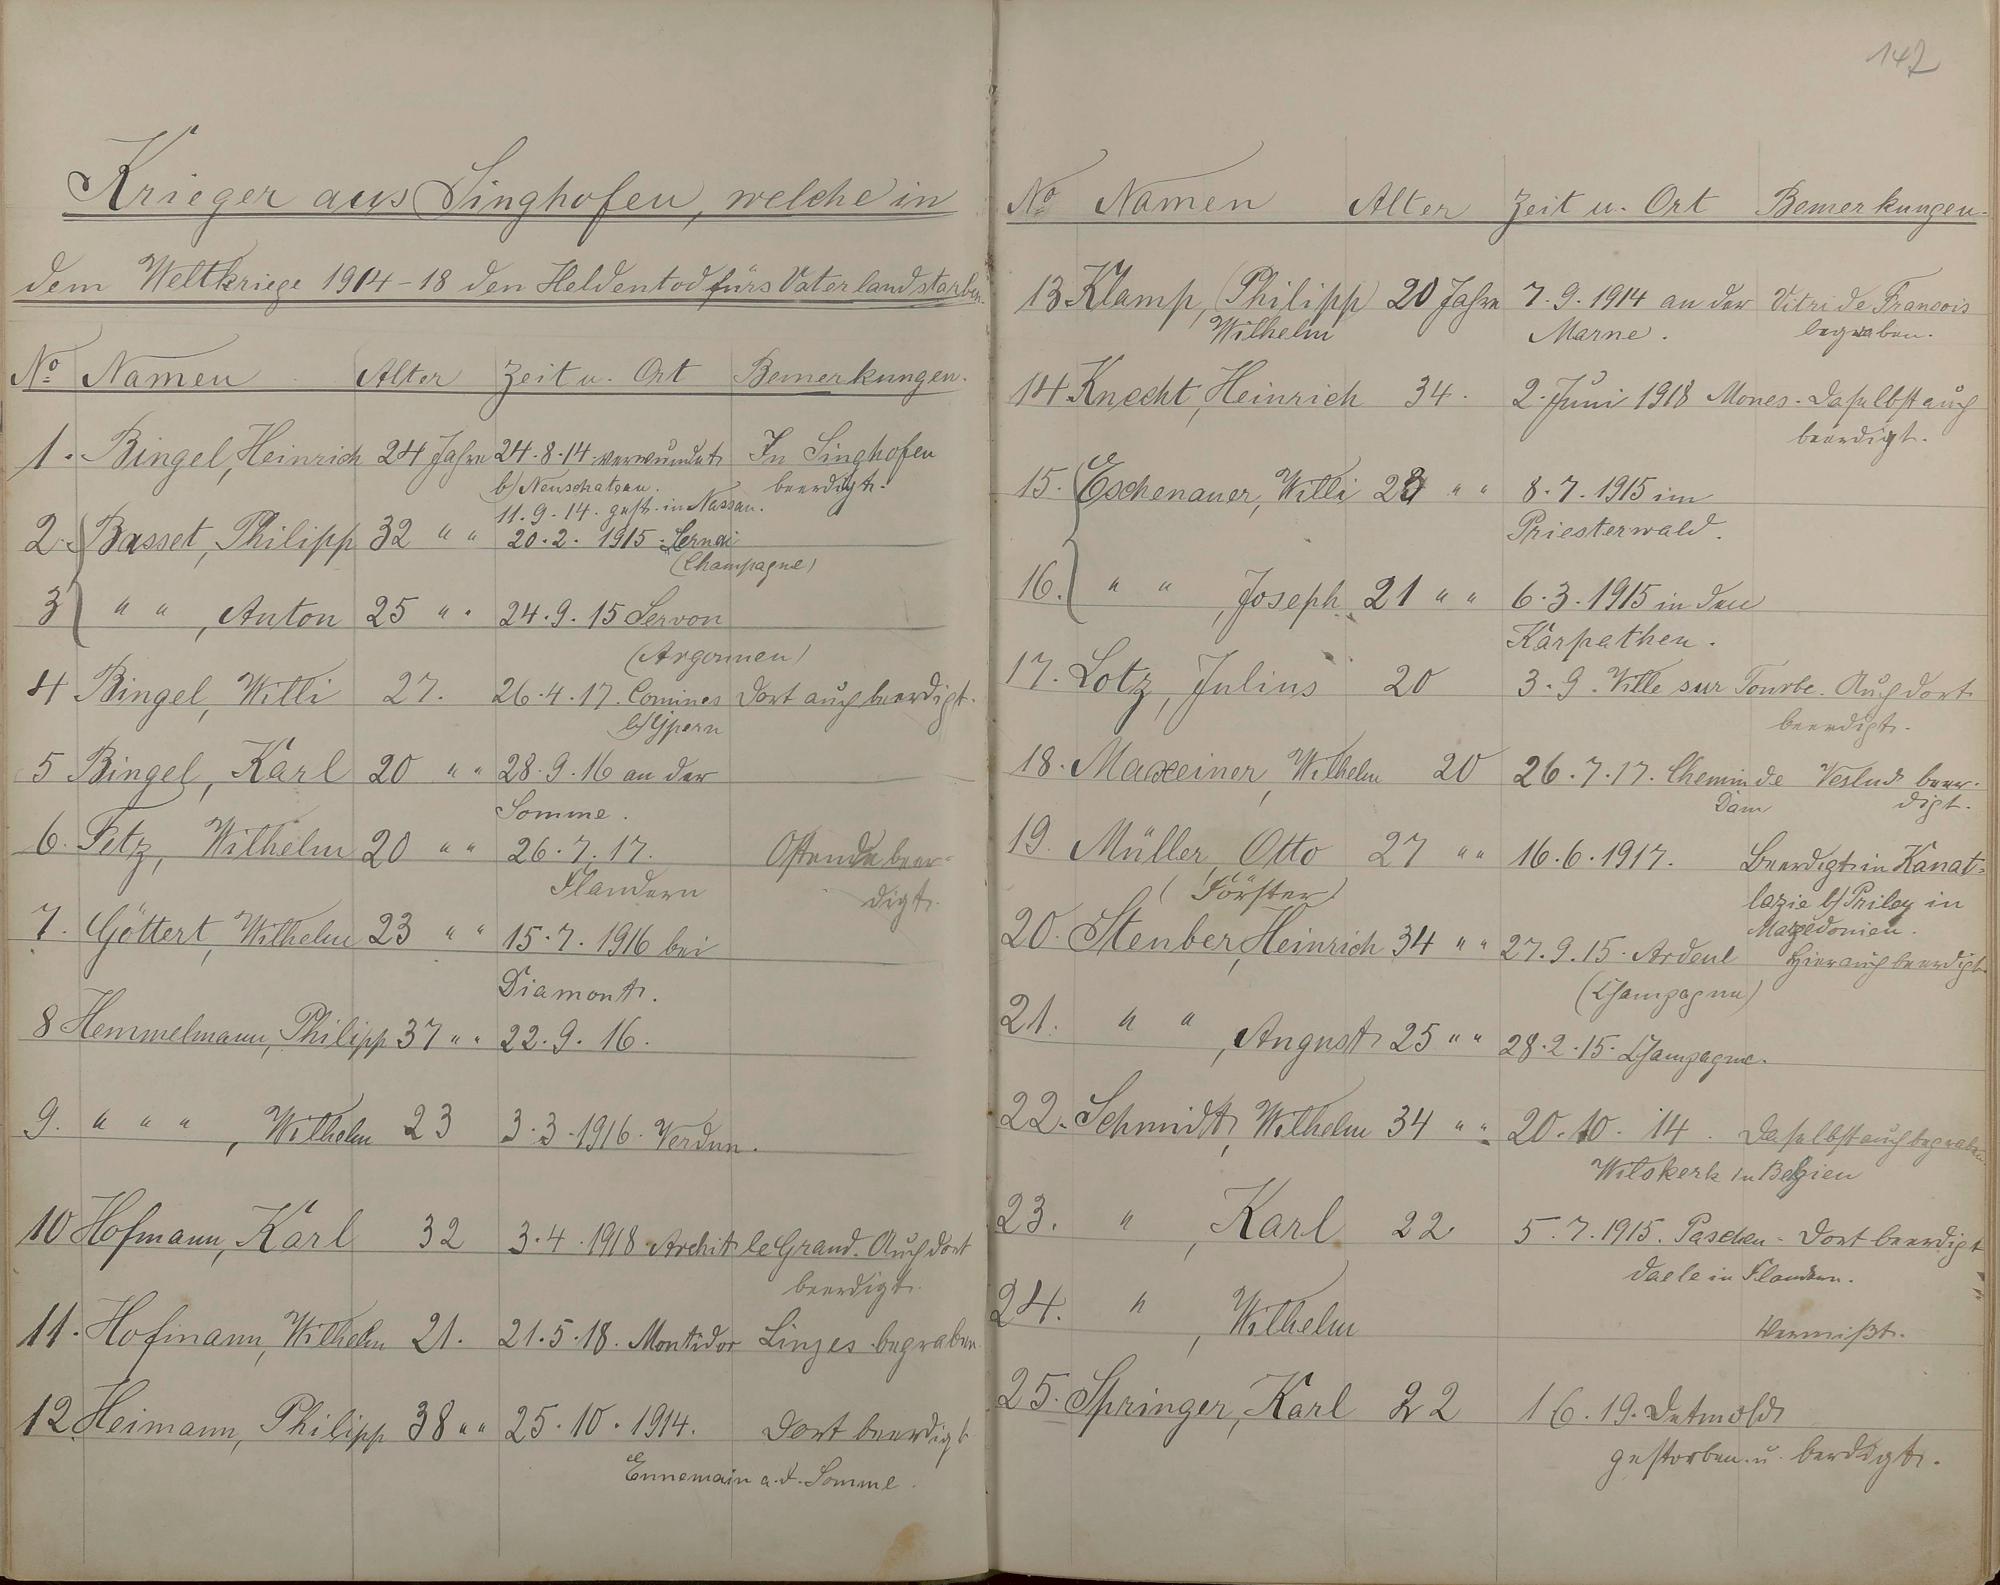 Krieger aus Singhofen, welche in
dem Weltkriege 1914-18 den Heldentod fürs Vaterland starben.
No Namen Alter Zeit u. Ort Bemerkungen.
1. Bingel, Heinrich 24 Jahre 24.8.14. verwundet In Singhofen
b/ Neuschateau. beerdigt.
11.9.14. gest. in Nassau.
2. Basset, Philipp 32 " " 20.2.1915.
(Champagne)
3 " " , Anton 25 " " 24.9.15 Servon
(Argonnen)
4 Bingel, Willi 27. 26.4.17. Comines Dort auch beerdigt.
b/Ypern
5 Bingel, Karl 20 " " 28.9.16 an der
Somme.
6. Fetz, Wilhelm 20 " " 26.7.17. Ostende beer-
Flandern digt.
7. Göttert, Wilhelm 23 " " 15.7.1916 bei
Diamont.
8 Hemmelmann, Philipp 37 " " 22.9.16.
9. " " " , Wilhelm 23 3.3.1916. Verdun.
10 Hofmann, Karl 32 3.4.1918 Archit le Grand. Auch dort
beerdigt.
11. Hofmann, Wilhelm 21. 21.5.18. Montidor begraben
12. Heimann, Philipp 38 " " 25.10.1914. Dort beerdigt
Ennemain a.d. Somme.
147
No Namen Alter Zeit u. Ort Bemerkungen.
13 Klamp, Philipp 20 Jahre 7.9.1914 an der Vitri de Francois
Wilhelm Marne. begraben.
14. Knecht, Heinrich 34. 2. Juni 1918 Mones. Daselbst auch
beerdigt.
15. Eschenauer, Willi 23 " " 8.7.1915 im
Priesterwald.
16. " " , Joseph 21 " " 6.3.1915 in den
Karpathen.
17. Lotz, Julius 20 3.9. Ville sur Tourbe. Auch dort
beerdigt.
18. Maxeiner, Wilhelm 20 26.7.17. Chemin de Veslud beer-
Dam digt.
19. Müller, Otto 27 " " 16.6.1917. Beerdigt in Kanat-
(Förster) lazie b/Prilep in
Mazedonien.
20. Stenber, Heinrich 34 " " 27.9.15. Ardeul Hier auch beerdigt
(Champagne)
21. " " , August 25 " " 28.2.15. Champagne.
22. Schmidt, Wilhelm 34 " " 20.10.14. Daselbst auch begraben.
Wilskerk in Belgien
23. " , Karl 22 5.7.1915. Paschen- Dort beerdigt
daele in Flandern.
24. " , Wilhelm Vermißt.
25. Springer, Karl 22 16.19. Detmold
gestorben u. berdigt.